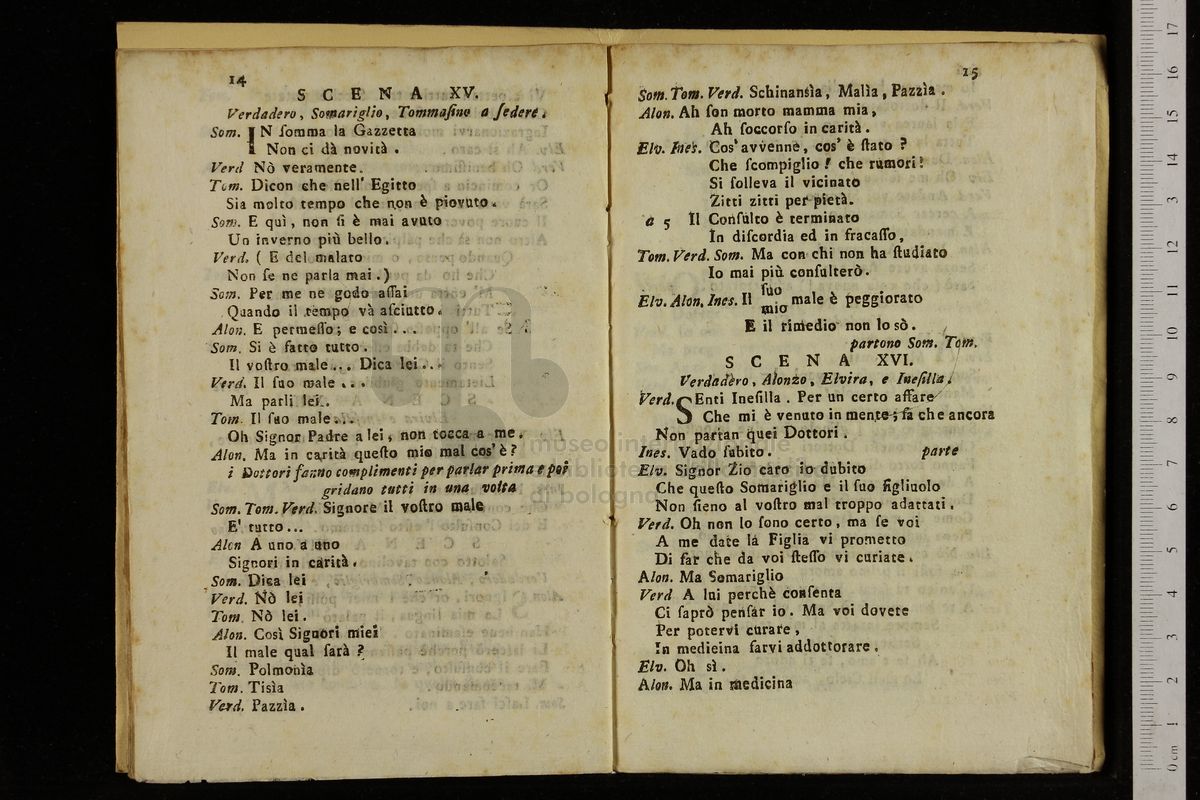 14
SCENA XV.
Verdadero, Somariglio, Tommasino a ſedere.
Som. IN ſomma la Gazzetta
Non ci dà novità.
Verd Nò veramente.
Tom. Dicon che nell' Egitto
Sia molto tempo che non è piovuto.
Som. E quì, non ſi è mai avuto
Un inverno più bello.
Verd. (E del malato
Non ſe ne parla mai.)
Som. Per me ne godo aſſai
Quando il tempo và aſciutto.
Alon. E permeſſo; e così...
Som. Si è fatto tutto.
Il voſtro male... Dica lei...
Verd. Il ſuo male...
Ma parli lei.
Tom. Il ſuo male...
Oh Signor Padre a lei, non tocca a me.
Alon. Ma in carità queſto mio mal cos' è?
i Dottori fanno complimenti per parlar prima e poi
gridano tutti in una volta
Som. Tom. Verd. Signore il voſtro male
E' tutto...
Alon A uno a uno
Signori in carità.
Som. Dica lei
Verd. Nò lei
Tom. Nò lei.
Alon. Così Signori miei
Il male qual ſarà?
Som. Polmonìa
Tom. Tisìa
Verd. Pazzìa.
15
Som. Tom. Verd. Schinansìa, Malìa, Pazzìa.
Alon. Ah ſon morto mamma mia,
Ah ſoccorſo in carità.
Elv. Ines. Cos' avvenne, cos' è ſtato?
Che ſcompiglio! che rumori!
Si ſolleva il vicinato
Zitti zitti per pietà.
a 5 Il Conſulto è terminato
In diſcordia ed in fracaſſo,
Tom. Verd. Som. Ma con chi non ha ſtudiato
Io mai più conſulterò.
Elv. Alon. Ines. Il ſuo mio male è peggiorato
E il rimedio non lo sò.
partono Som. Tom.
SCENA XVI.
Verdadero, Alonzo, Elvira, e Ineſilla.
Verd. SEnti Ineſilla. Per un certo affare
Che mi è venuto in mente; fà che ancora
Non partan quei Dottori.
Ines. Vado ſubito. parte
Elv. Signor Zio caro io dubito
Che queſto Somariglio e il ſuo figliuolo
Non ſieno al voſtro mal troppo adattati.
Verd. Oh non lo ſono certo, ma ſe voi
A me date la Figlia vi prometto
Di far che da voi ſteſſo vi curiate.
Alon. Ma Somariglio
Verd A lui perchè conſenta
Ci ſaprò penſar io. Ma voi dovete
Per potervi curare,
In medicina farvi addottorare.
Elv. Oh sì.
Alon. Ma in medicina
museo internazionale
biblioteca
di bologna
0 cm 1 2 3 4 5 6 7 8 9 10 11 12 13 14 15 16 17